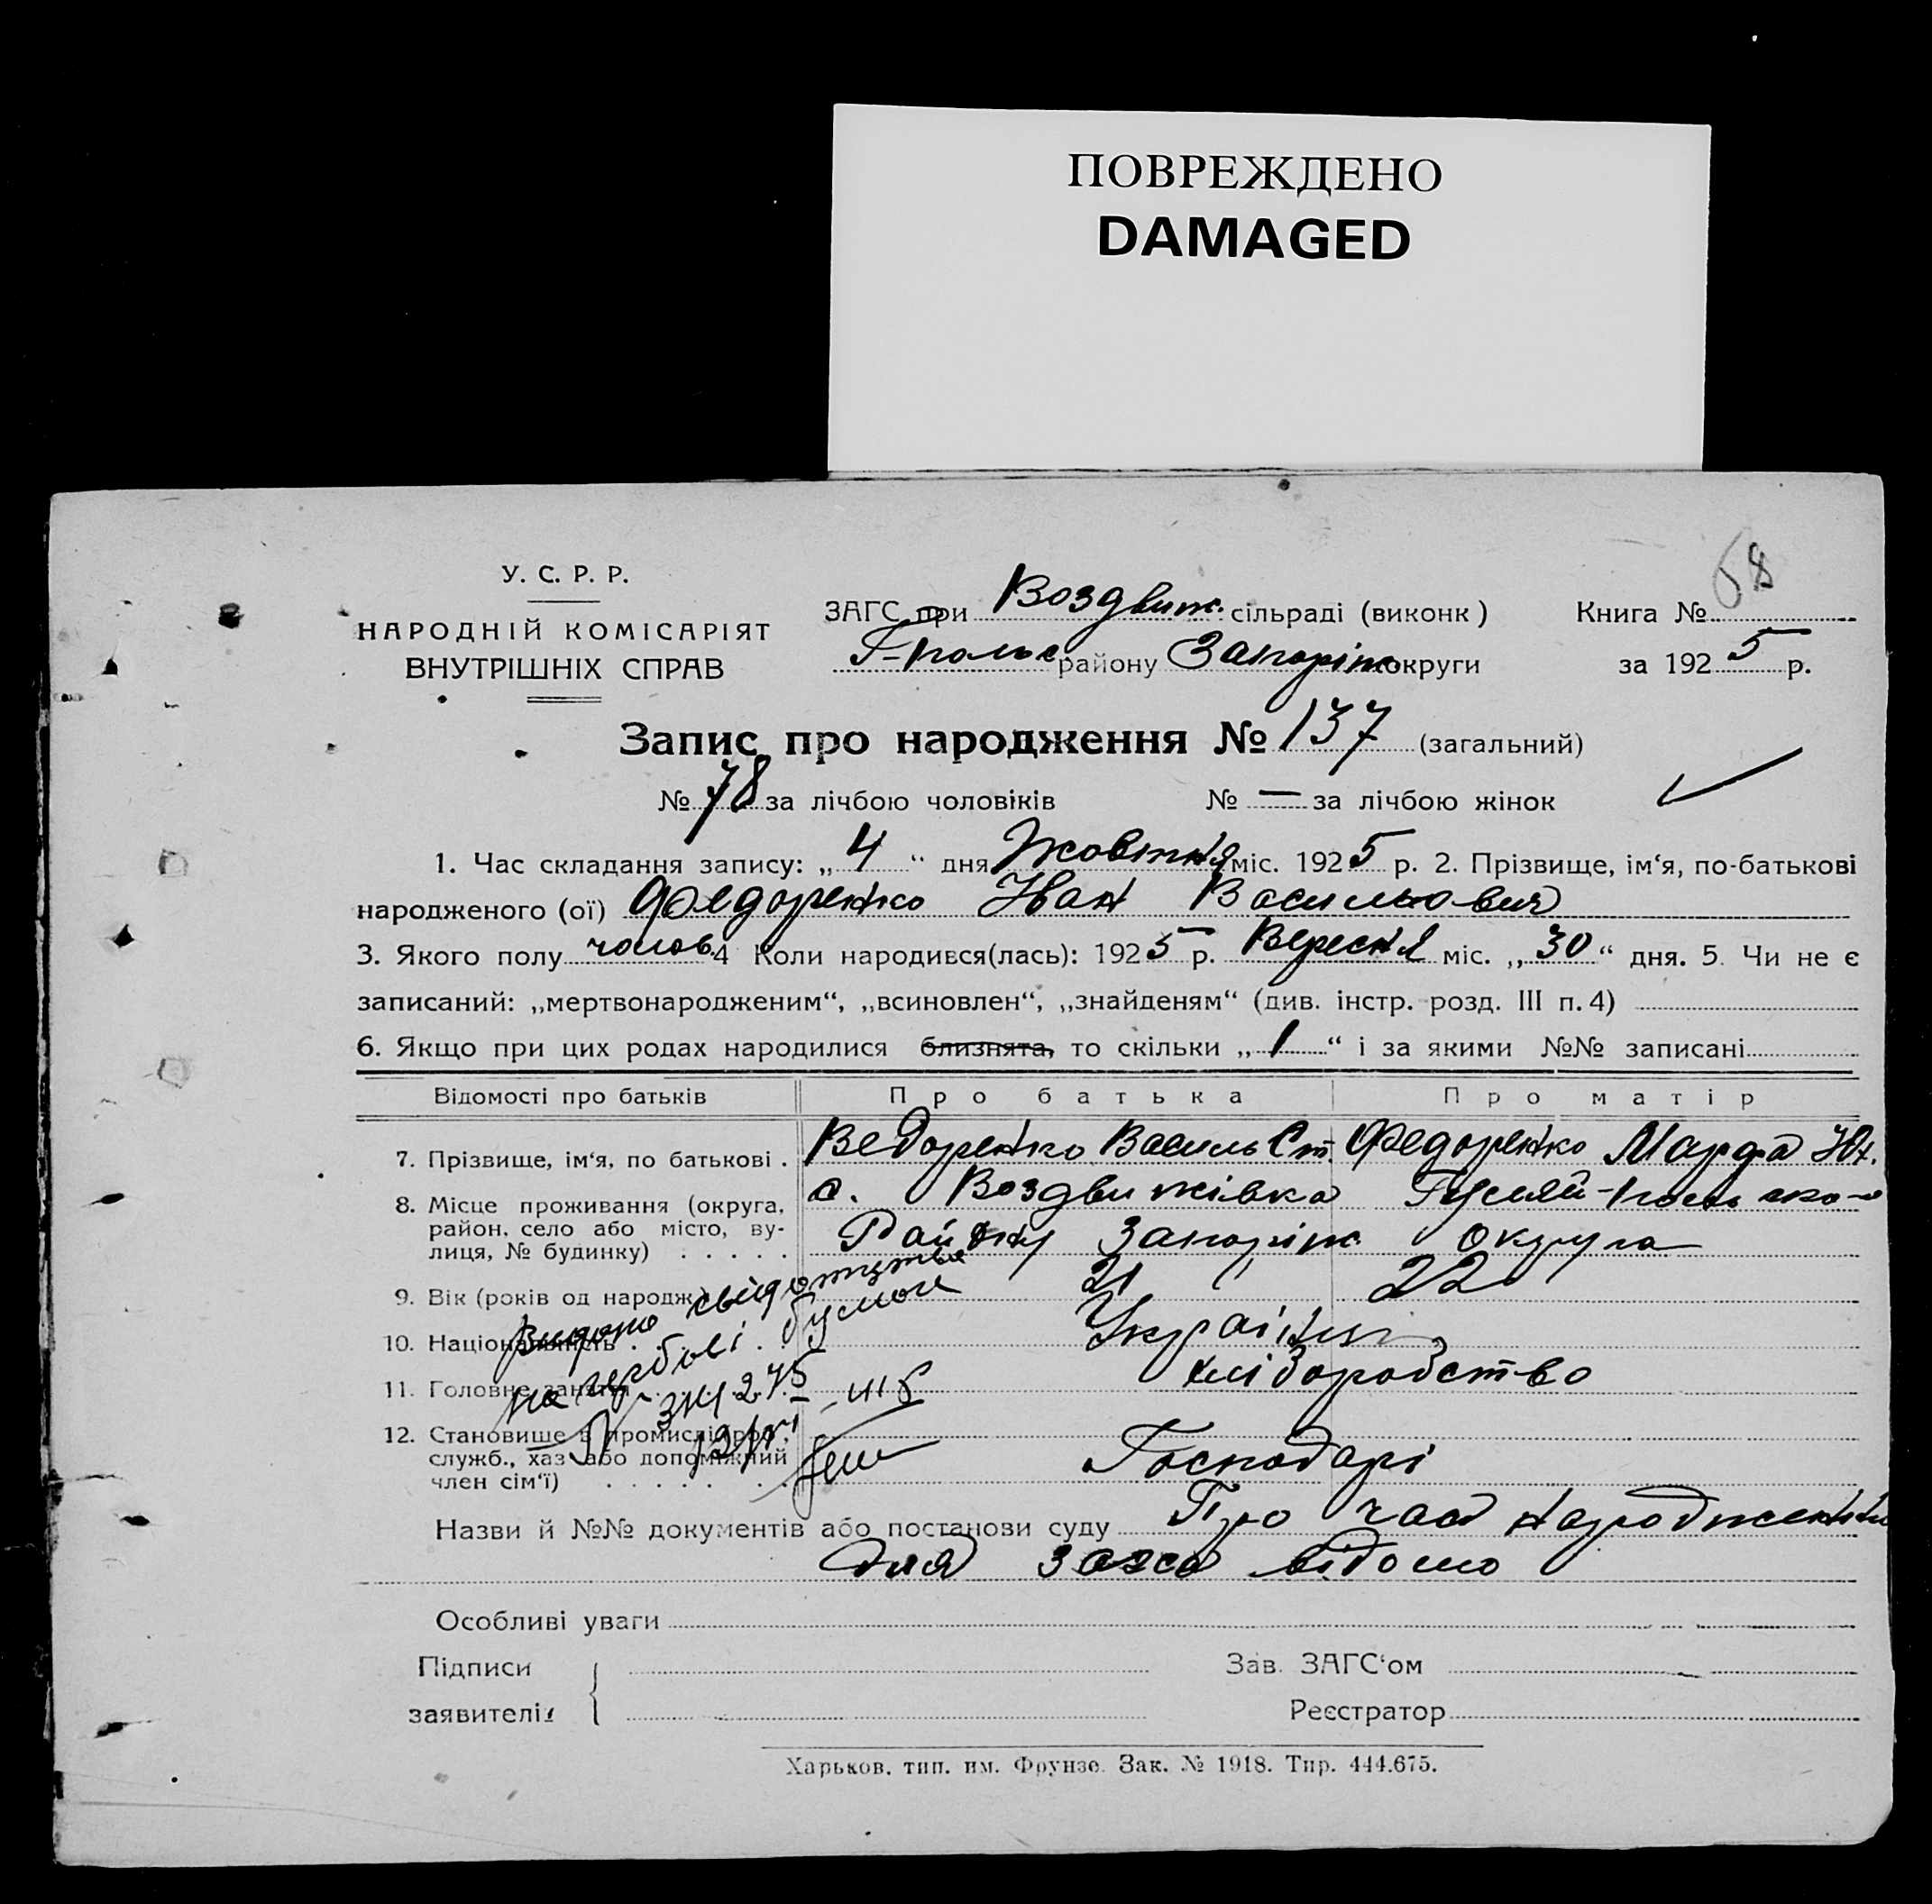 ПОВРЕЖДЕНО
DAMAGED
68
У. С. Р. Р.
НАРОДНІЙ КОМІСАРІЯТ
ВНУТРІШНІХ СПРАВ
ЗАГС при Воздвиж. сільраді (виконк)
Г-Польс району Запоріж округи
Книга №
за 1925 р.
Запис про народження № 137 (загальний)
№ 78 за лічбою чоловіків № — за лічбою жінок
1. Час складання запису: „4“ дня Жовтня міс. 1925 р. 2. Прізвище, ім‘я, по-батькові
народженого (ої) Федоренко Іван Васильович
3. Якого полу чолов. 4 Коли народився(лась): 1925 р. Вересня міс. „30“ дня. 5. Чи не є
записаний: „мертвонародженим“, „всиновлен“, „знайденям“ (див. інстр. розд. III п. 4)
6. Якщо при цих родах народилися близнята, то скільки „1“ і за якими №№ записані
Відомості про батьків Про батька Про матір
7. Прізвище, ім‘я, по батькові . Ведоренко Василь Ст. Федоренко Марфа Юх.
8. Місце проживання (округа, район, село або місто, вулиця, № будинку) с. Воздвижівка Гуляй-Польсько-
Району Запоріж. округа
9. Вік (років од народж.) 21 22
10. Національність Українці
11. Головне заняття хліборобство
12. Становище в промислі (роб., служб., хаз або допоміжний член сім‘ї) Господарі
Видано свидотцтво
на гербові бумаги
Назви й №№ документів або постанови суду Про час народження
для загса відомо
Особливі уваги
Підписи
заявителів
Зав. ЗАГС‘ом
Реєстратор
Харьков, тип. им. Фрунзе. Зак. № 1918. Тир. 444.675.